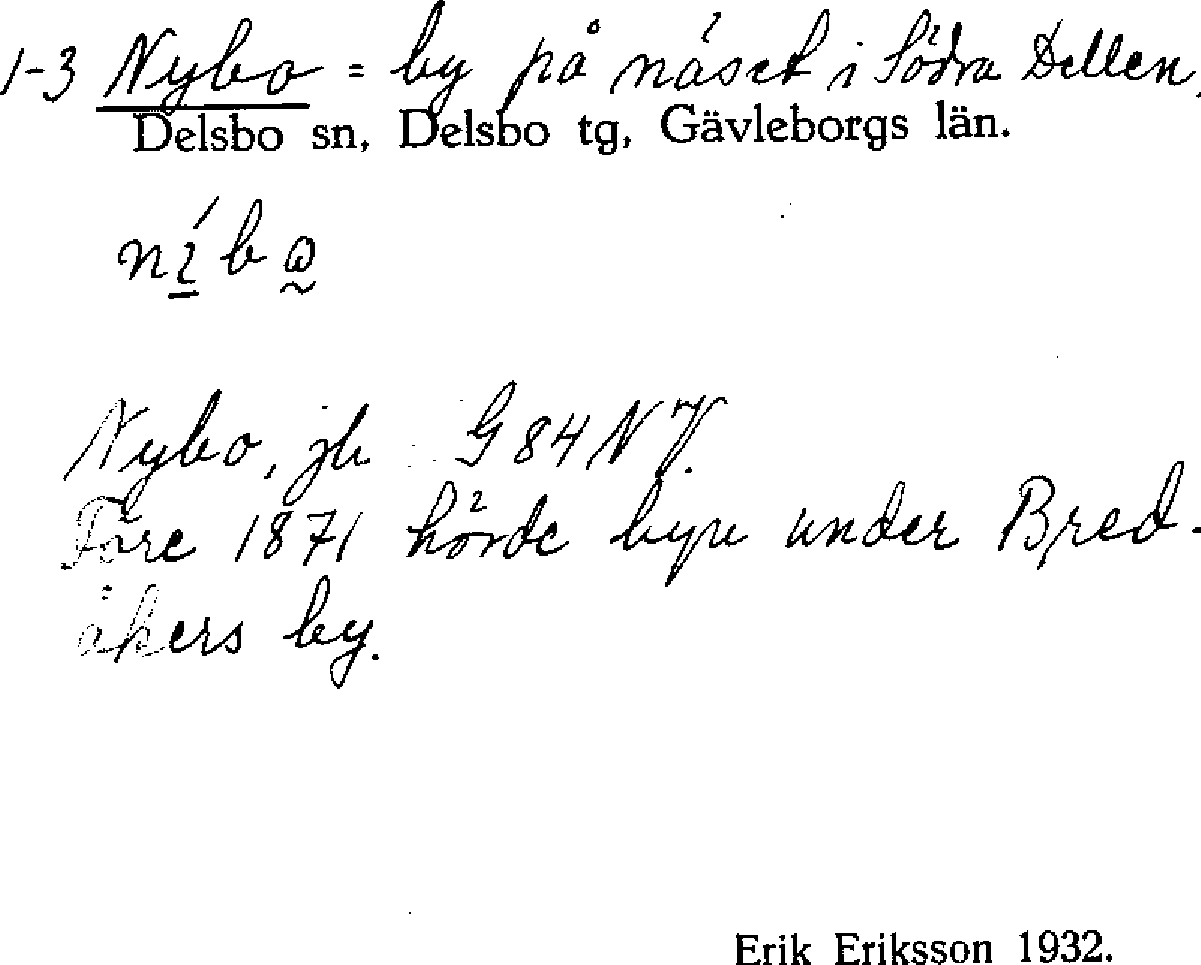 1-3 Nybo = by på näset i Södra Dellen.
Delsbo sn, Delsbo tg, Gävleborgs län.
Nybo, jb G 84 N V.
Före 1871 hörde byn under Bred-
åkers by.
Erik Eriksson 1932.